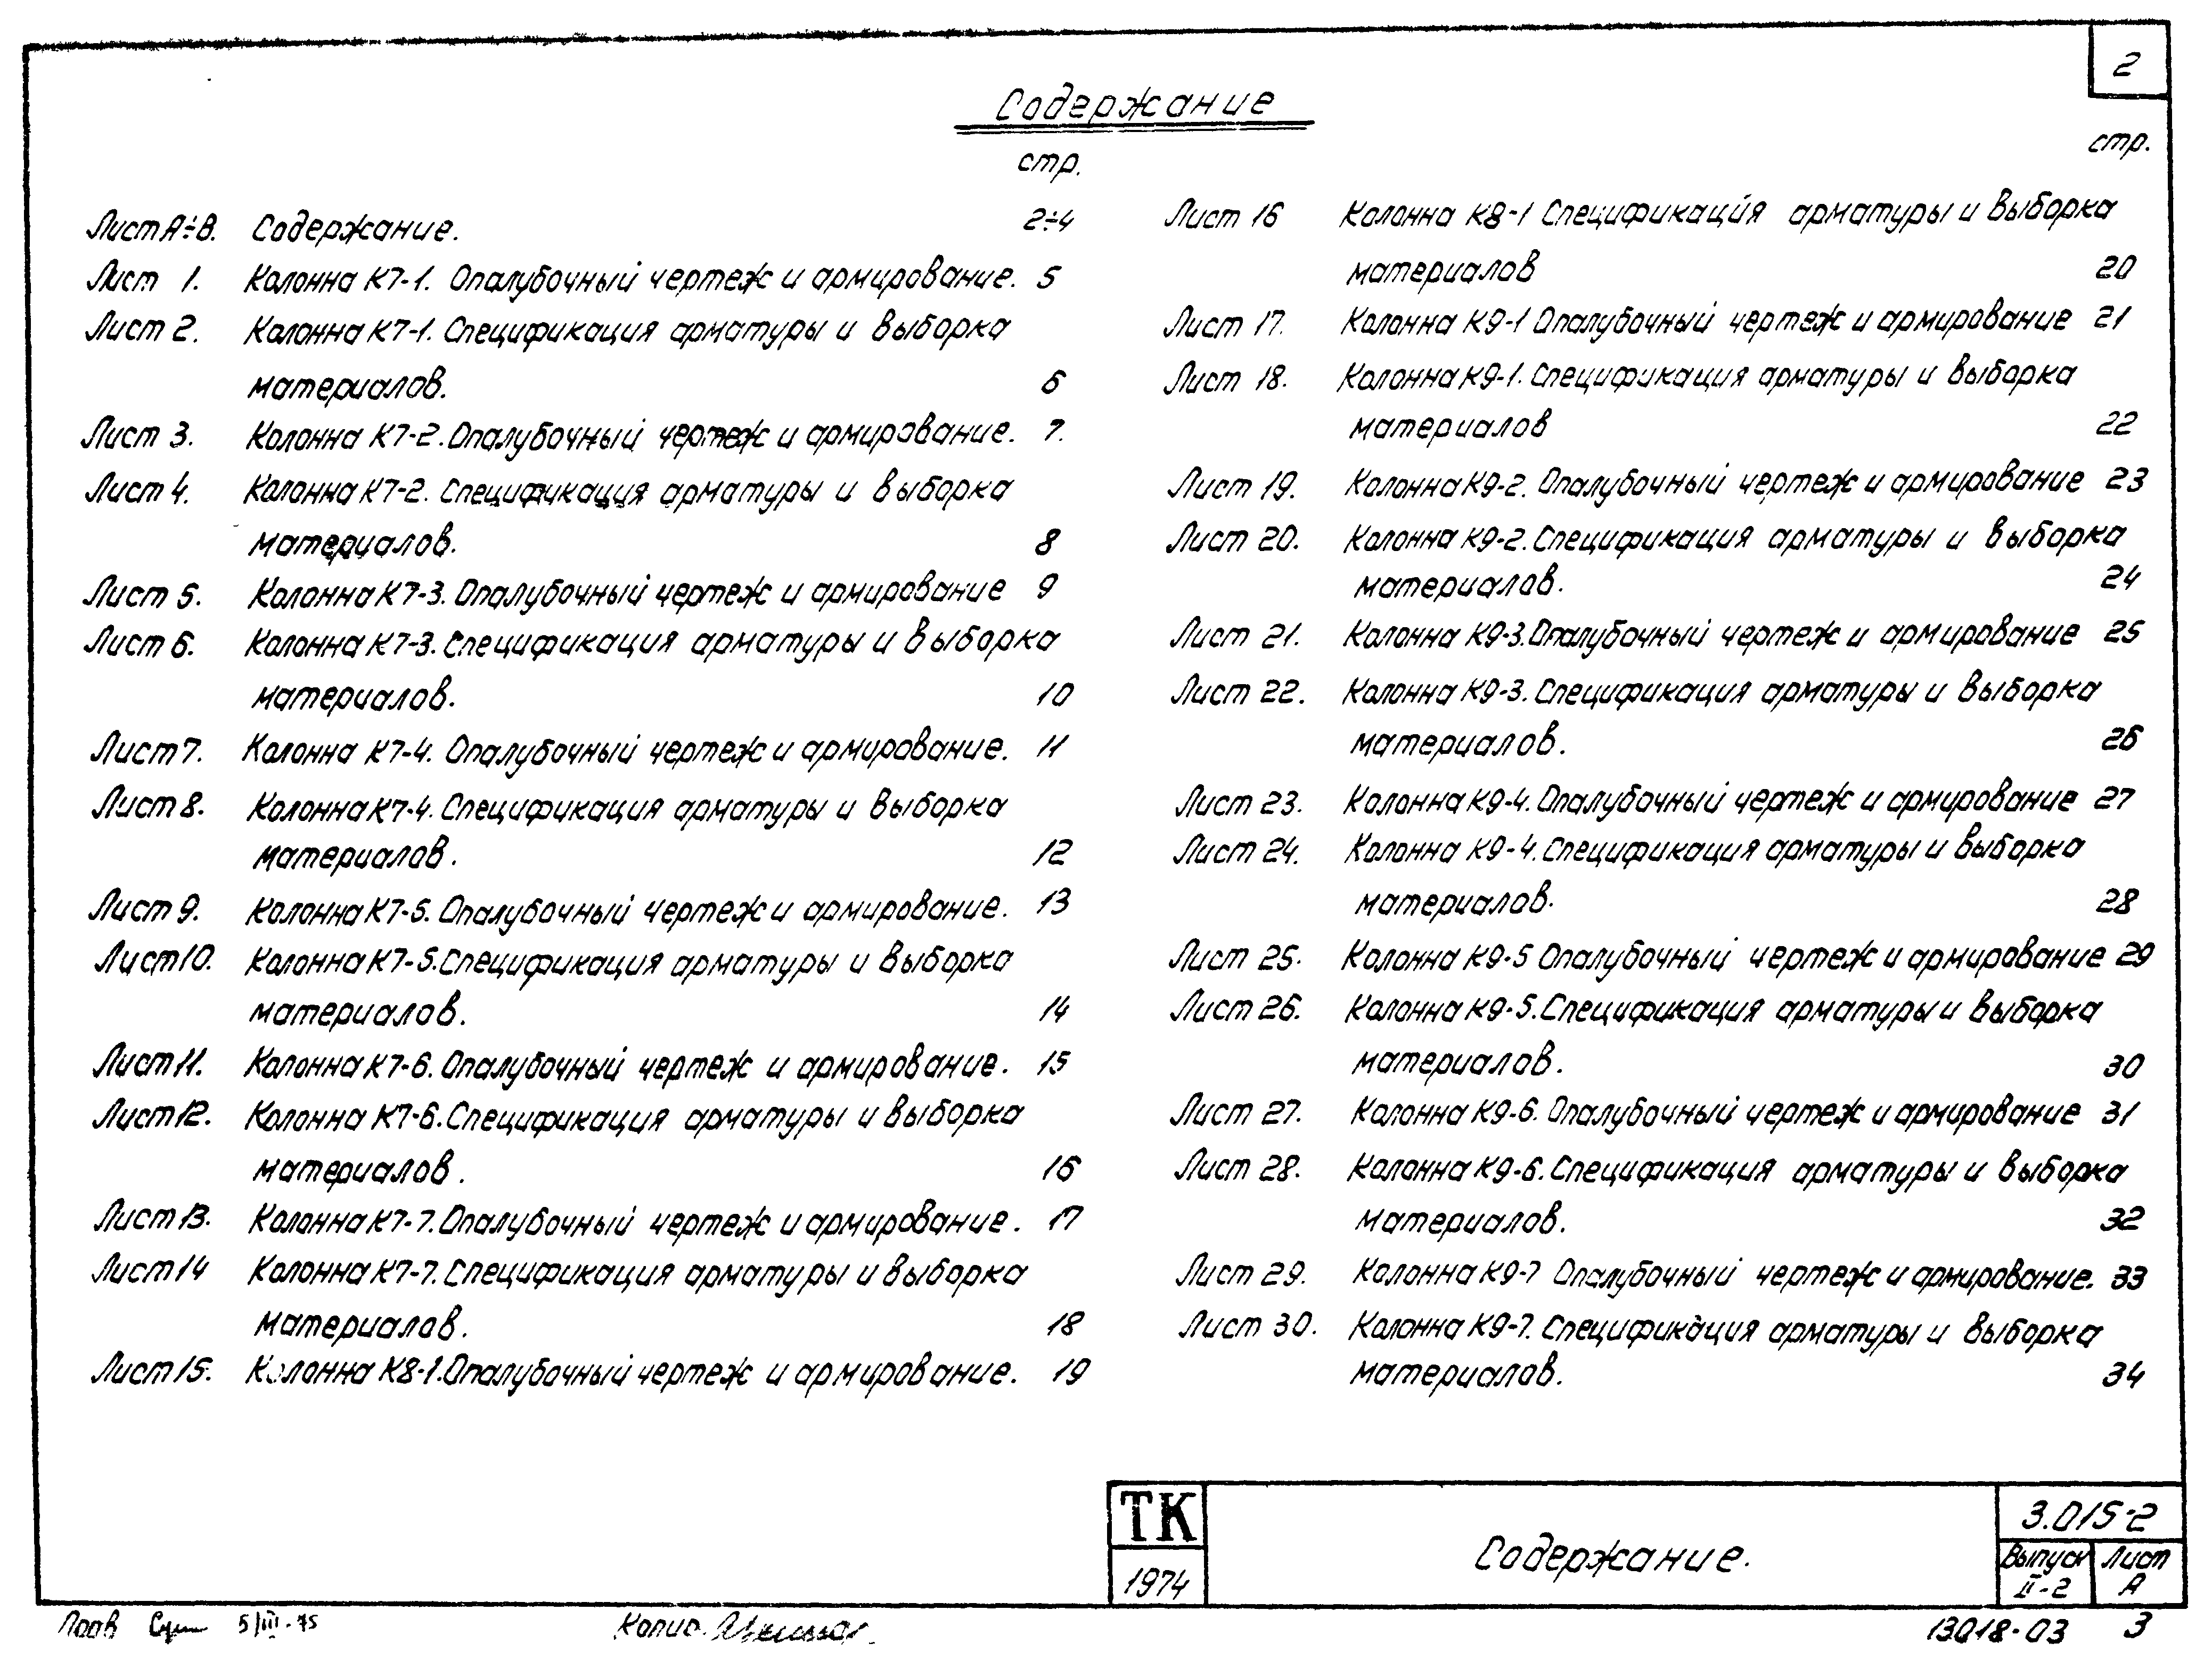 2
Содержание
стр.
Лист А÷В. Содержание. 2÷4
Лист 1. Колонна К7-1. Опалубочный чертеж и армирование. 5
Лист 2. Колонна К7-1. Спецификация арматуры и выборка
материалов. 6
Лист 3. Колонна К7-2. Опалубочный чертеж и армирование. 7.
Лист 4. Колонна К7-2. Спецификация арматуры и выборка
материалов. 8
Лист 5. Колонна К7-3. Опалубочный чертеж и армирование 9
Лист 6. Колонна К7-3. Спецификация арматуры и выборка
материалов. 10
Лист 7. Колонна К7-4. Опалубочный чертеж и армирование. 11
Лист 8. Колонна К7-4. Спецификация арматуры и выборка
материалов. 12
Лист 9. Колонна К7-5. Опалубочный чертеж и армирование. 13
Лист 10. Колонна К7-5. Спецификация арматуры и выборка
материалов. 14
Лист 11. Колонна К7-6. Опалубочный чертеж и армирование. 15
Лист 12. Колонна К7-6. Спецификация арматуры и выборка
материалов. 16
Лист 13. Колонна К7-7. Опалубочный чертеж и армирование. 17
Лист 14 Колонна К7-7. Спецификация арматуры и выборка
материалов. 18
Лист 15. Колонна К8-1. Опалубочный чертеж и армирование. 19
стр.
Лист 16 Колонна К8-1 Спецификация арматуры и выборка
материалов 20
Лист 17. Колонна К9-1 Опалубочный чертеж и армирование 21
Лист 18. Колонна К9-1. Спецификация арматуры и выборка
материалов 22
Лист 19. Колонна К9-2. Опалубочный чертеж и армирование 23
Лист 20. Колонна К9-2. Спецификация арматуры и выборка
материалов. 24
Лист 21. Колонна К9-3. Опалубочный чертеж и армирование 25
Лист 22. Колонна К9-3. Спецификация арматуры и выборка
материалов. 26
Лист 23. Колонна К9-4. Опалубочный чертеж и армирование 27
Лист 24. Колонна К9-4. Спецификация арматуры и выборка
материалов. 28
Лист 25. Колонна К9-5 Опалубочный чертеж и армирование 29
Лист 26. Колонна К9-5. Спецификация арматуры и выборка
материалов. 30
Лист 27. Колонна К9-6. Опалубочный чертеж и армирование 31
Лист 28. Колонна К9-6. Спецификация арматуры и выборка
материалов. 32
Лист 29. Колонна К9-7 Опалубочный чертеж и армирование. 33
Лист 30. Колонна К9-7. Спецификация арматуры и выборка
материалов. 34
ТК
1974
Содержание.
3.015-2
Выпуск II-2
Лист А
5/III-75
Копир.
13018-03 3